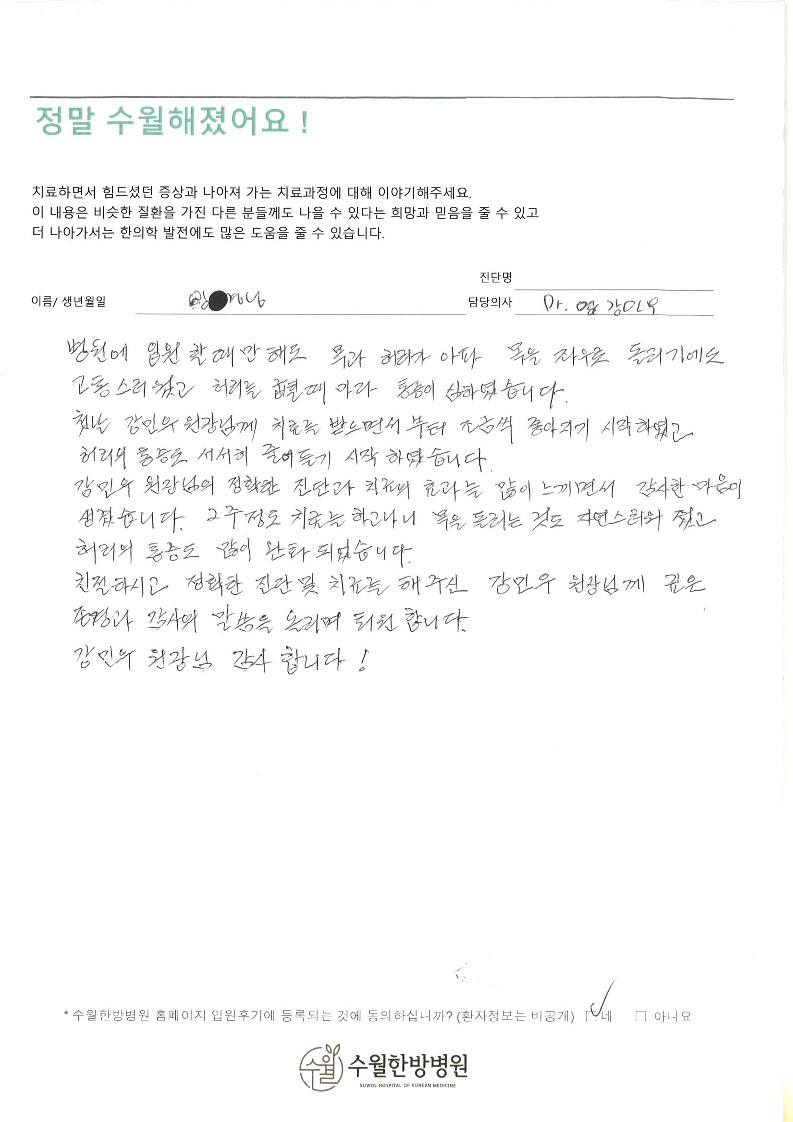 정말 수월해졌어요 !
치료하면서 힘드셨던 증상과 나아져 가는 치료과정에 대해 이야기해주세요.
이 내용은 비슷한 질환을 가진 다른 분들께도 나을 수 있다는 희망과 믿음을 줄 수 있고
더 나아가서는 한의학 발전에도 많은 도움을 줄 수 있습니다.
진단명
이름/ 생년월일
담당의사 Dr. 강민우
병원에 입원 할때만 해도 목과 허리가 아파 목을 좌우로 돌리기에도
고통스러웠고 허리를 굽힐때 마다 통증이 심하였습니다.
첫날 강민우 원장님께 치료를 받으면서 부터 조금씩 좋아지기 시작하였고
허리의 통증도 서서히 줄어들기 시작 하였습니다.
강민우 원장님의 정확한 진단과 치료의 효과를 많이 느끼면서 감사한 마음이
생겼습니다. 2주정도 치료를 하고나니 목을 돌리는 것도 자연스러워 졌고
허리의 통증도 많이 완화 되었습니다.
친절하시고 정확한 진단 및 치료를 해주신 강민우 원장님께 깊은
존경과 감사의 말씀을 올리며 퇴원 합니다.
강민우 원장님 감사 합니다 !
* 수월한방병원 홈페이지 입원후기에 등록되는 것에 동의하십니까? (환자정보는 비공개) ☑ 네 □ 아니요
수월 수월한방병원
SUWOL HOSPITAL OF KOREAN MEDICINE